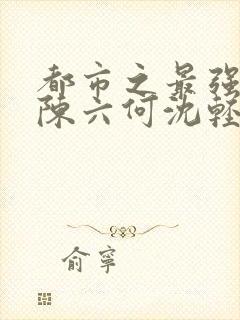 都市之最强
陈六何沈轻
俞寧